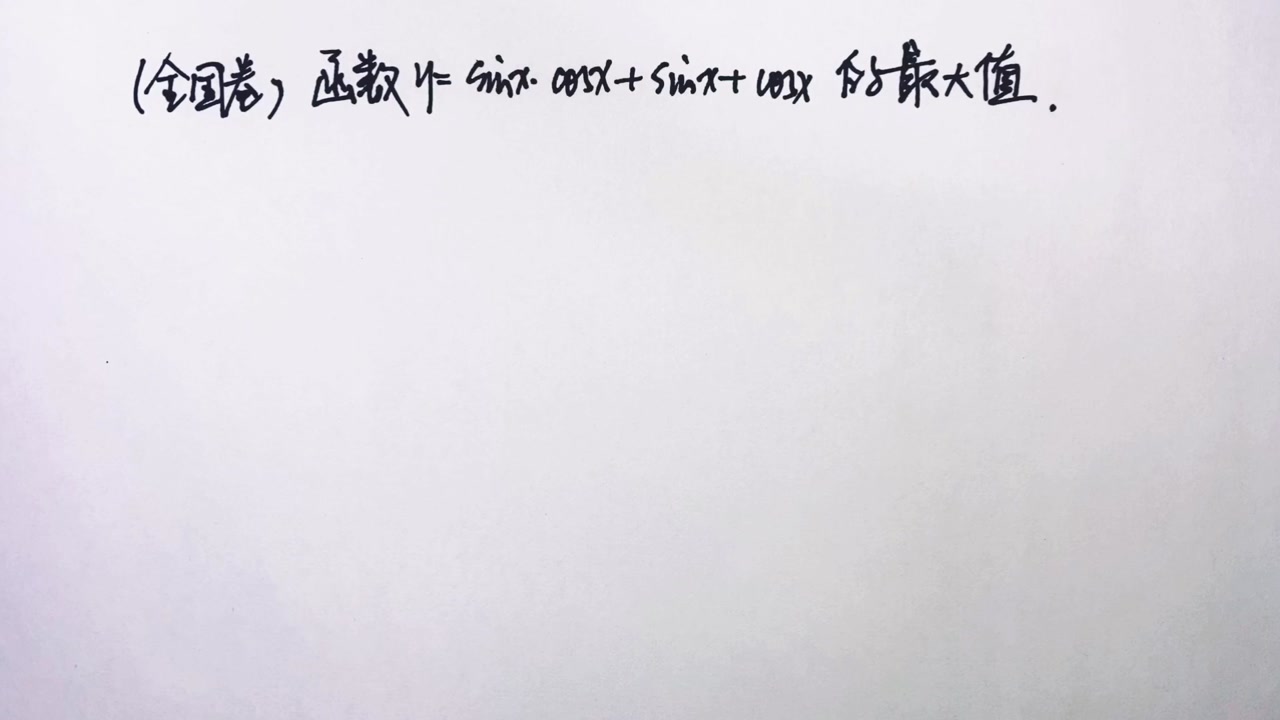 (全国卷) 函数y= sinx·cosx+sinx+cosx 的最大值.